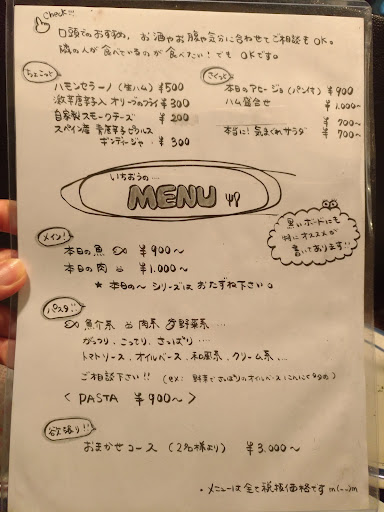 check!!!
口頭でのおすすめ、お酒やお腹や気分に合わせてご相談もOK。
隣の人が食べているのが食べたい!でもOKです。
ちょこっと
ハモンセラーノ (生ハム) ¥500
激辛唐辛子入オリーブのフライ ¥300
自家製スモークチーズ ¥200
スペイン産 青唐辛子ピクルス
ギンディージャ ¥300
さくっと
本日のアヒージョ (パン付) ¥900
ハム盛合せ ¥1.000~
¥700~
本当に!気まぐれサラダ ¥700~
いちおうの...
MENU
黒いボードにも
特にオススメが
書いてあります!!
メイン!
本日の魚 ¥900~
本日の肉 ¥1.000~
★ 本日の~シリーズは おたずね下さい。
パスタ!!
魚介系 肉系 野菜系...
がっつり、こってり、さっぱり...
トマトソース、オイルベース、和風系、クリーム系...
ご相談下さい!! (ex: 野菜でさっぱりのオイルベースにんにく多め)
< PASTA ¥900~ >
欲張り!!
おまかせコース (2名様より) ¥3.000~
・メニューは全て税抜価格です m(--)m